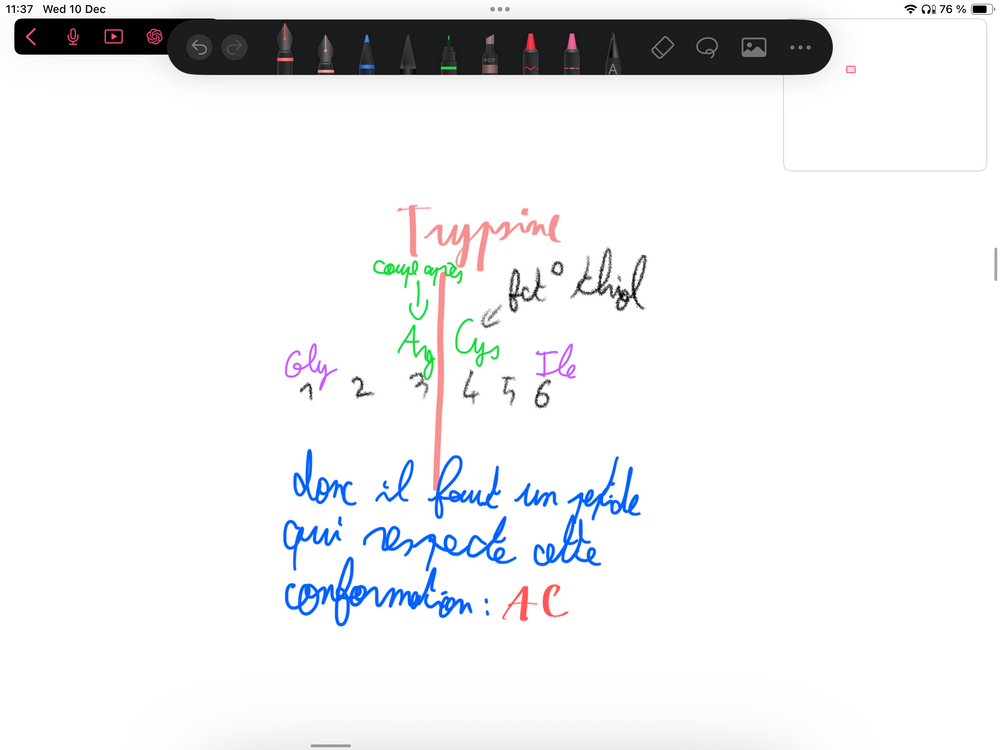 11:37 Wed 10 Dec
76 %
PDF
A
Trypsine
coupe après
fct° thiol
Arg Cys
Gly Ile
1 2 3 4 5 6
donc il faut un peptide
qui respecte cette
conformation : AC